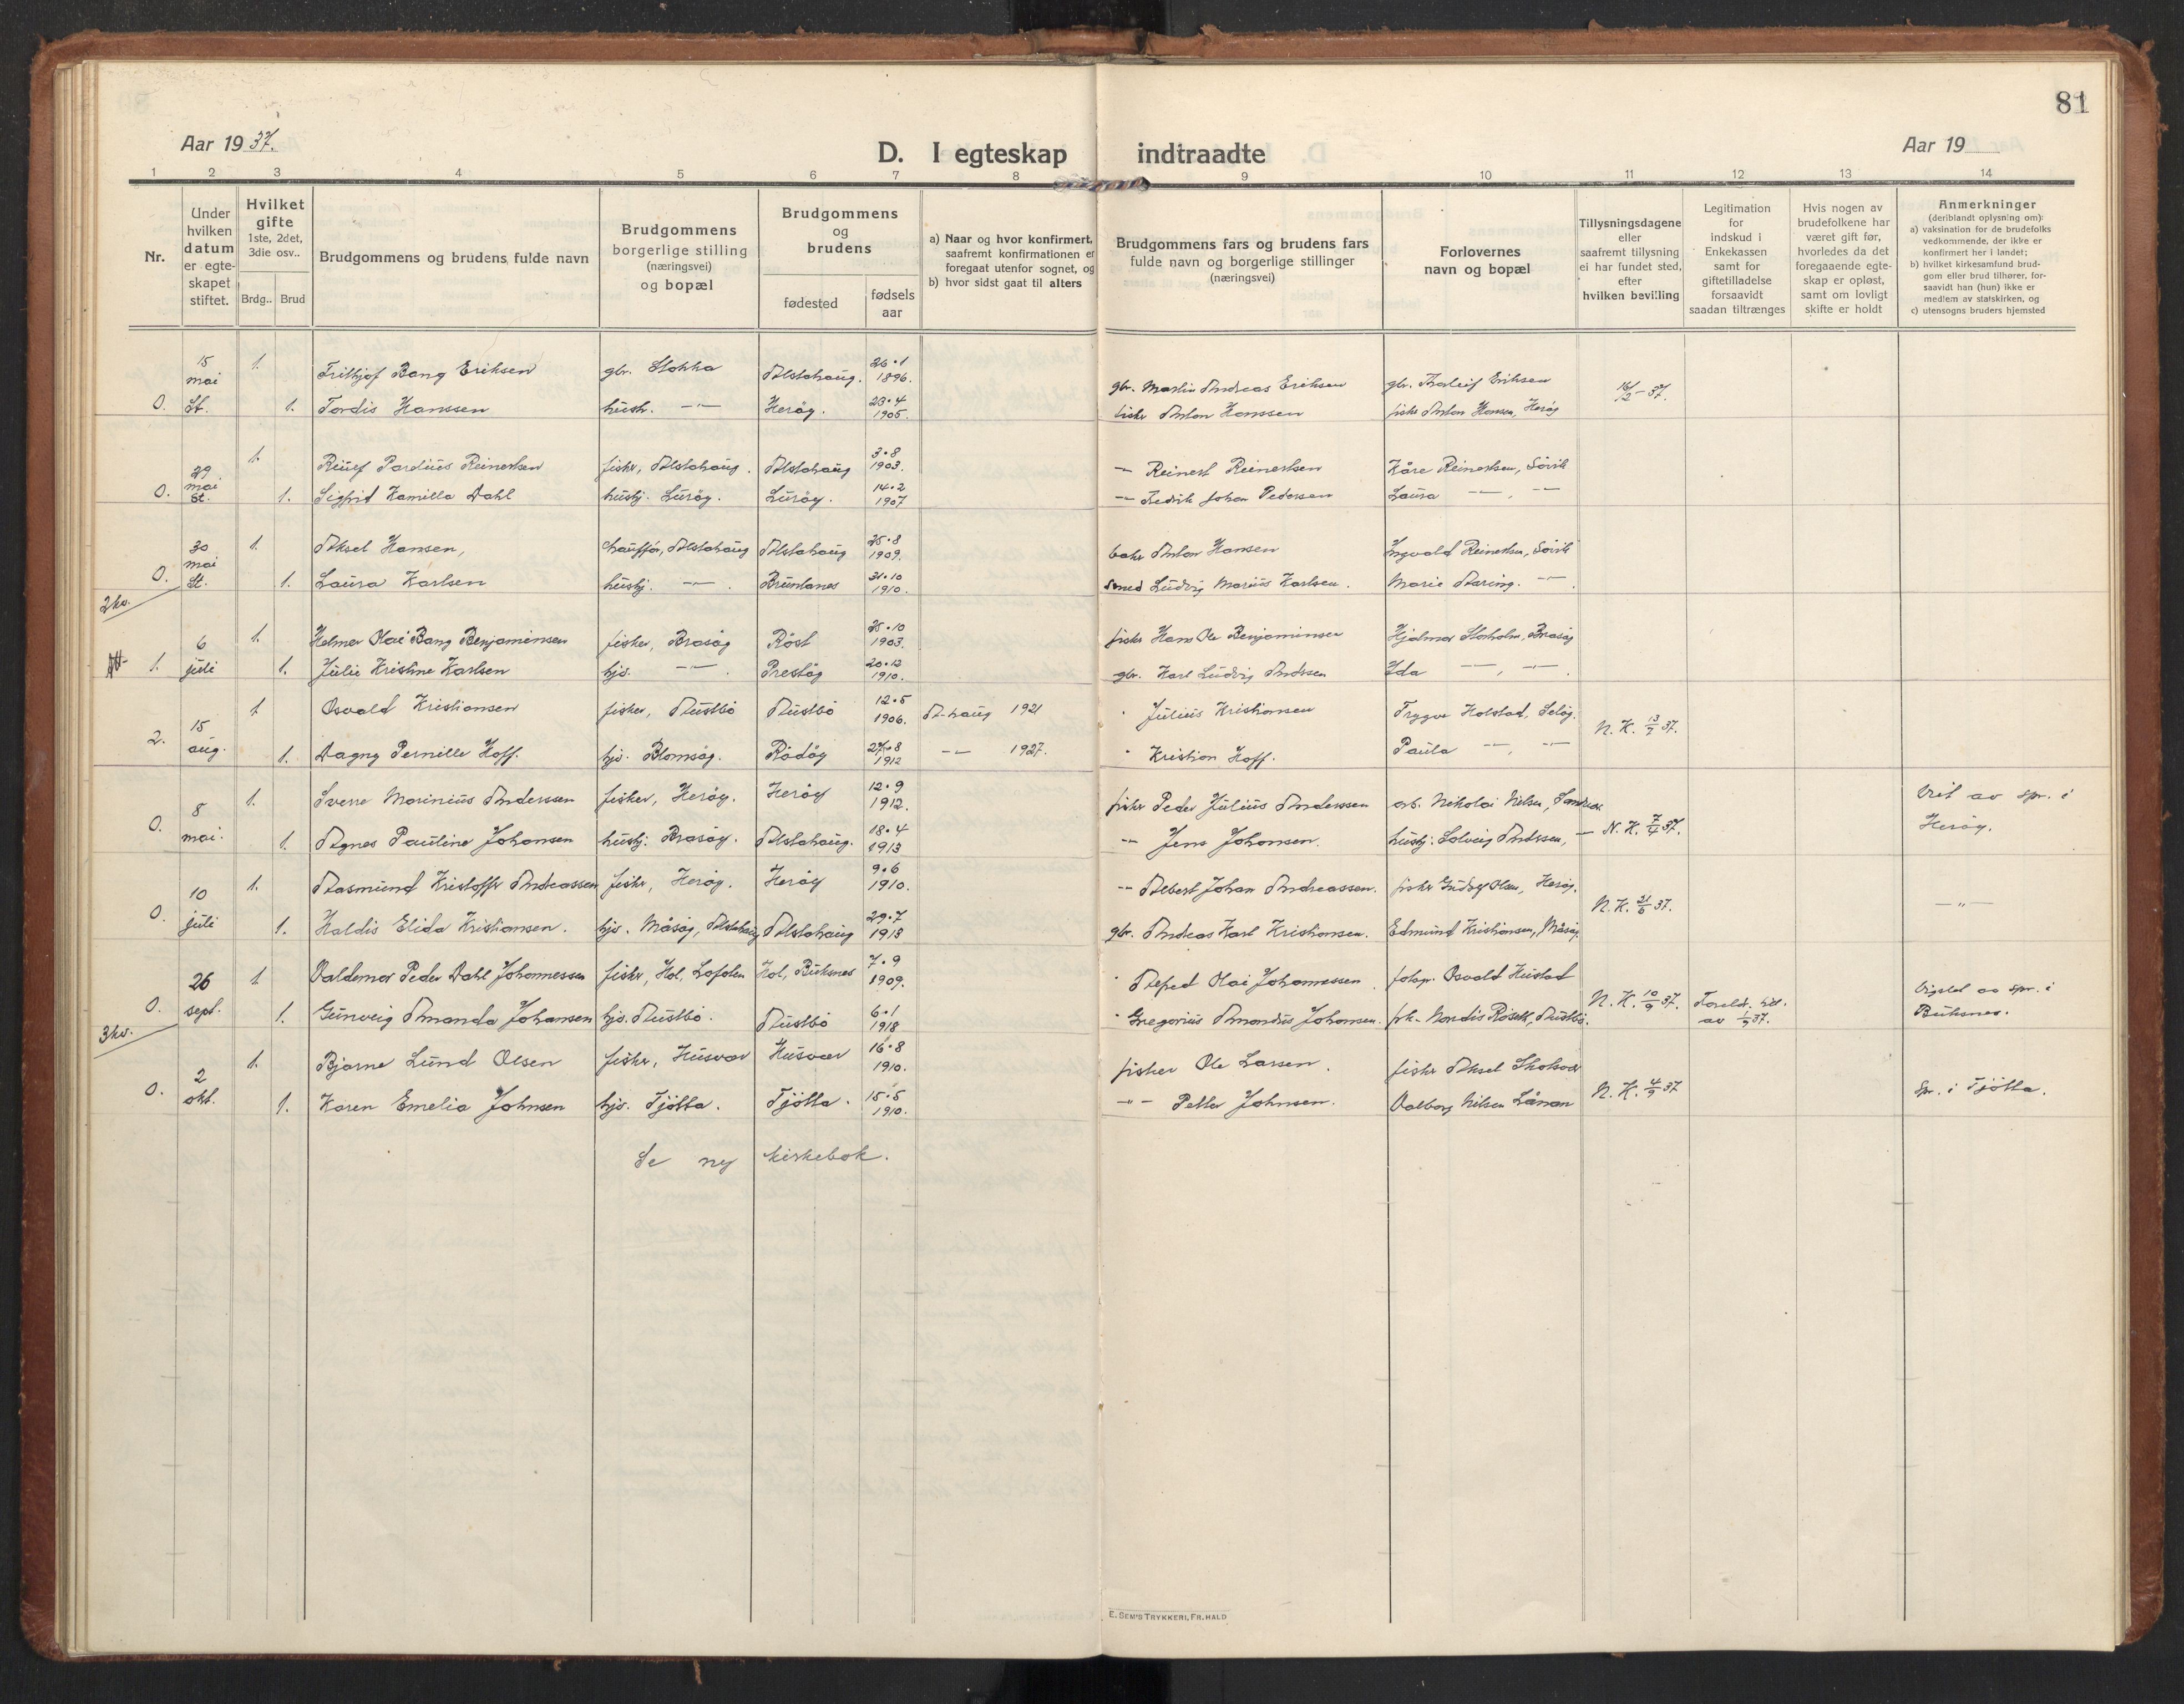 81
Aar 1937.
D. I egteskap indtraadte
Aar 19
1 2 3 4 5 6 7 8 9 10 11 12 13 14
Nr.
Under hvilken datum er egte-skapet stiftet.
Hvilket gifte 1ste, 2det, 3die osv..
Brdg.. Brud
Brudgommens og brudens fulde navn
Brudgommens borgerlige stilling (næringsvei) og bopæl
Brudgommens og brudens
fødested
fødsels aar
a) Naar og hvor konfirmert, saafremt konfirmationen er foregaat utenfor sognet, og
b) hvor sidst gaat til alters
Brudgommens fars og brudens fars fulde navn og borgerlige stillinger (næringsvei)
Forlovernes navn og bopæl
Tillysningsdagene eller saafremt tillysning ei har fundet sted, efter hvilken bevilling
Legitimation for indskud i Enkekassen samt for giftetilladelse forsaavidt saadan tiltrænges
Hvis nogen av brudefolkene har været gift før, hvorledes da det foregaaende egte-skap er opløst, samt om lovligt skifte er holdt
Anmerkninger
(deriblandt oplysning om):
a) vaksination for de brudefolks vedkommende, der ikke er konfirmert her i landet;
b) hvilket kirkesamfund brud-gom eller brud tilhører, for-saavidt han (hun) ikke er medlem av statskirken, og
c) utensogns bruders hjemsted
15 mai 1. Frithjof Bang Eriksen gbr. Stokka Alstahaug. 26.1 1896. gbr. Martin Andreas Eriksen gbr. Thorleif Eriksen 16/2-37.
0. St. 1. Tordis Hanssen hush. -"- Herøy. 23.4 1905. fisker Anton Hanssen fisker Anton Hansen, Herøy
29 mai 1. Reinert Reinertsen fisker, Alstahaug. Alstahaug 3.8 1903. -"- Reinert Reinertsen Kåre Reinertsen, Sörvik
0. St. 1. Sigfrid Kamilla Dahl hushj. Lurøy. Lurøy. 14.2 1907 -"- Fredrik Johan Pedersen Laura -"-, -"-
30 mai 1. Aksel Hansen, chauffør, Alstahaug Alstahaug 25.8 1909. baker Anton Hansen Ingvald Reinertsen, Sörvik
0. St. 1. Laura Karlsen hushj. -"-. 31.10 1910. smed Ludvig Marius Karlsen. Marie -"-.
2 kv.
6 juli 1. Helmer Olai Bang Benjaminsen fisker, Brasøy Röst 25.10 1903. fisker Hans Ole Benjaminsen Hjalmar Storholm, Brasøy
1. 1. Julie Kristine Karlsen hjs. -"-. Prestøy 20.12 1910. gbr. Karl Ludvig Andersen Ida -"-, -"-.
15 aug. 1. Osvald Kristiansen fisker, Austbö Austbö 12.5 1906. A-haug 1921 " Julius Kristiansen Trygve Holstad, Seløy. N.K. 13/7 37.
2. 1. Dagny Pernille Hoff. hjs. Blomsøy. Rödöy 27.8 1912 -"- 1927. " Kristian Hoff. Paula -"-, -"-
8 mai. 1. Sverre Marinius Anderssen fisker, Herøy. Herøy 12.9 1912. fisker Peder Julius Anderssen arb. Nikolai Nilsen, Viet av spr. i Herøy.
0. 1. Agnes Pauline Johansen hushj: Brasøy. Alstahaug. 18.4 1913 -"- Jens Johansen. hushj: Solveig Anderssen, -"- N.K. 7/4 37.
10 juli 1. Aasmund Kristoffer Andreassen fisker, Herøy. Herøy 9.6 1910. -"- Albert Johan Andreassen. fisker Olsen, Herøy. N.K. 21/6 37. -"-
0. 1. Haldis Elida Kristiansen. hjs. Måsøy, Alstahaug Alstahaug 29.7 1913 gbr. Andreas Karl Kristiansen. Edmund Kristiansen, Måsøy
26 sept. 1 Valdemar Peder Dahl Johannessen fisker, Hol, Lofoten Hol, Buksnes 7.9 1909. " Alfred Olai Johannessen. Osvald Hustad Vigslet av spr. i Buksnes.
0. 1. Gunveig Amanda Johansen hjs. Austbö. Austbö 6.1 1918 " Gregorius Amandus Johansen. frk. Nordis Röseth, Austbö. N.K. 10/9 37. Foreldr. till. av 1/9 37.
3 kv.
2 okt. 1. Bjarne Lund Olsen fisker, Husvær Husvær 16.8 1910. fisker Ole Larsen. fisker Aksel Skotsvær
0. 1. Karen Emelia Johnsen hjs. Tjötta. Tjötta. 15.5 1910. -"- Petter Johnsen. Valborg Nilsen Lånan N.K. 4/9 37 Spr. i Tjötta.
Se ny kirkebok.
E. Sem's Trykkeri, Fr.hald